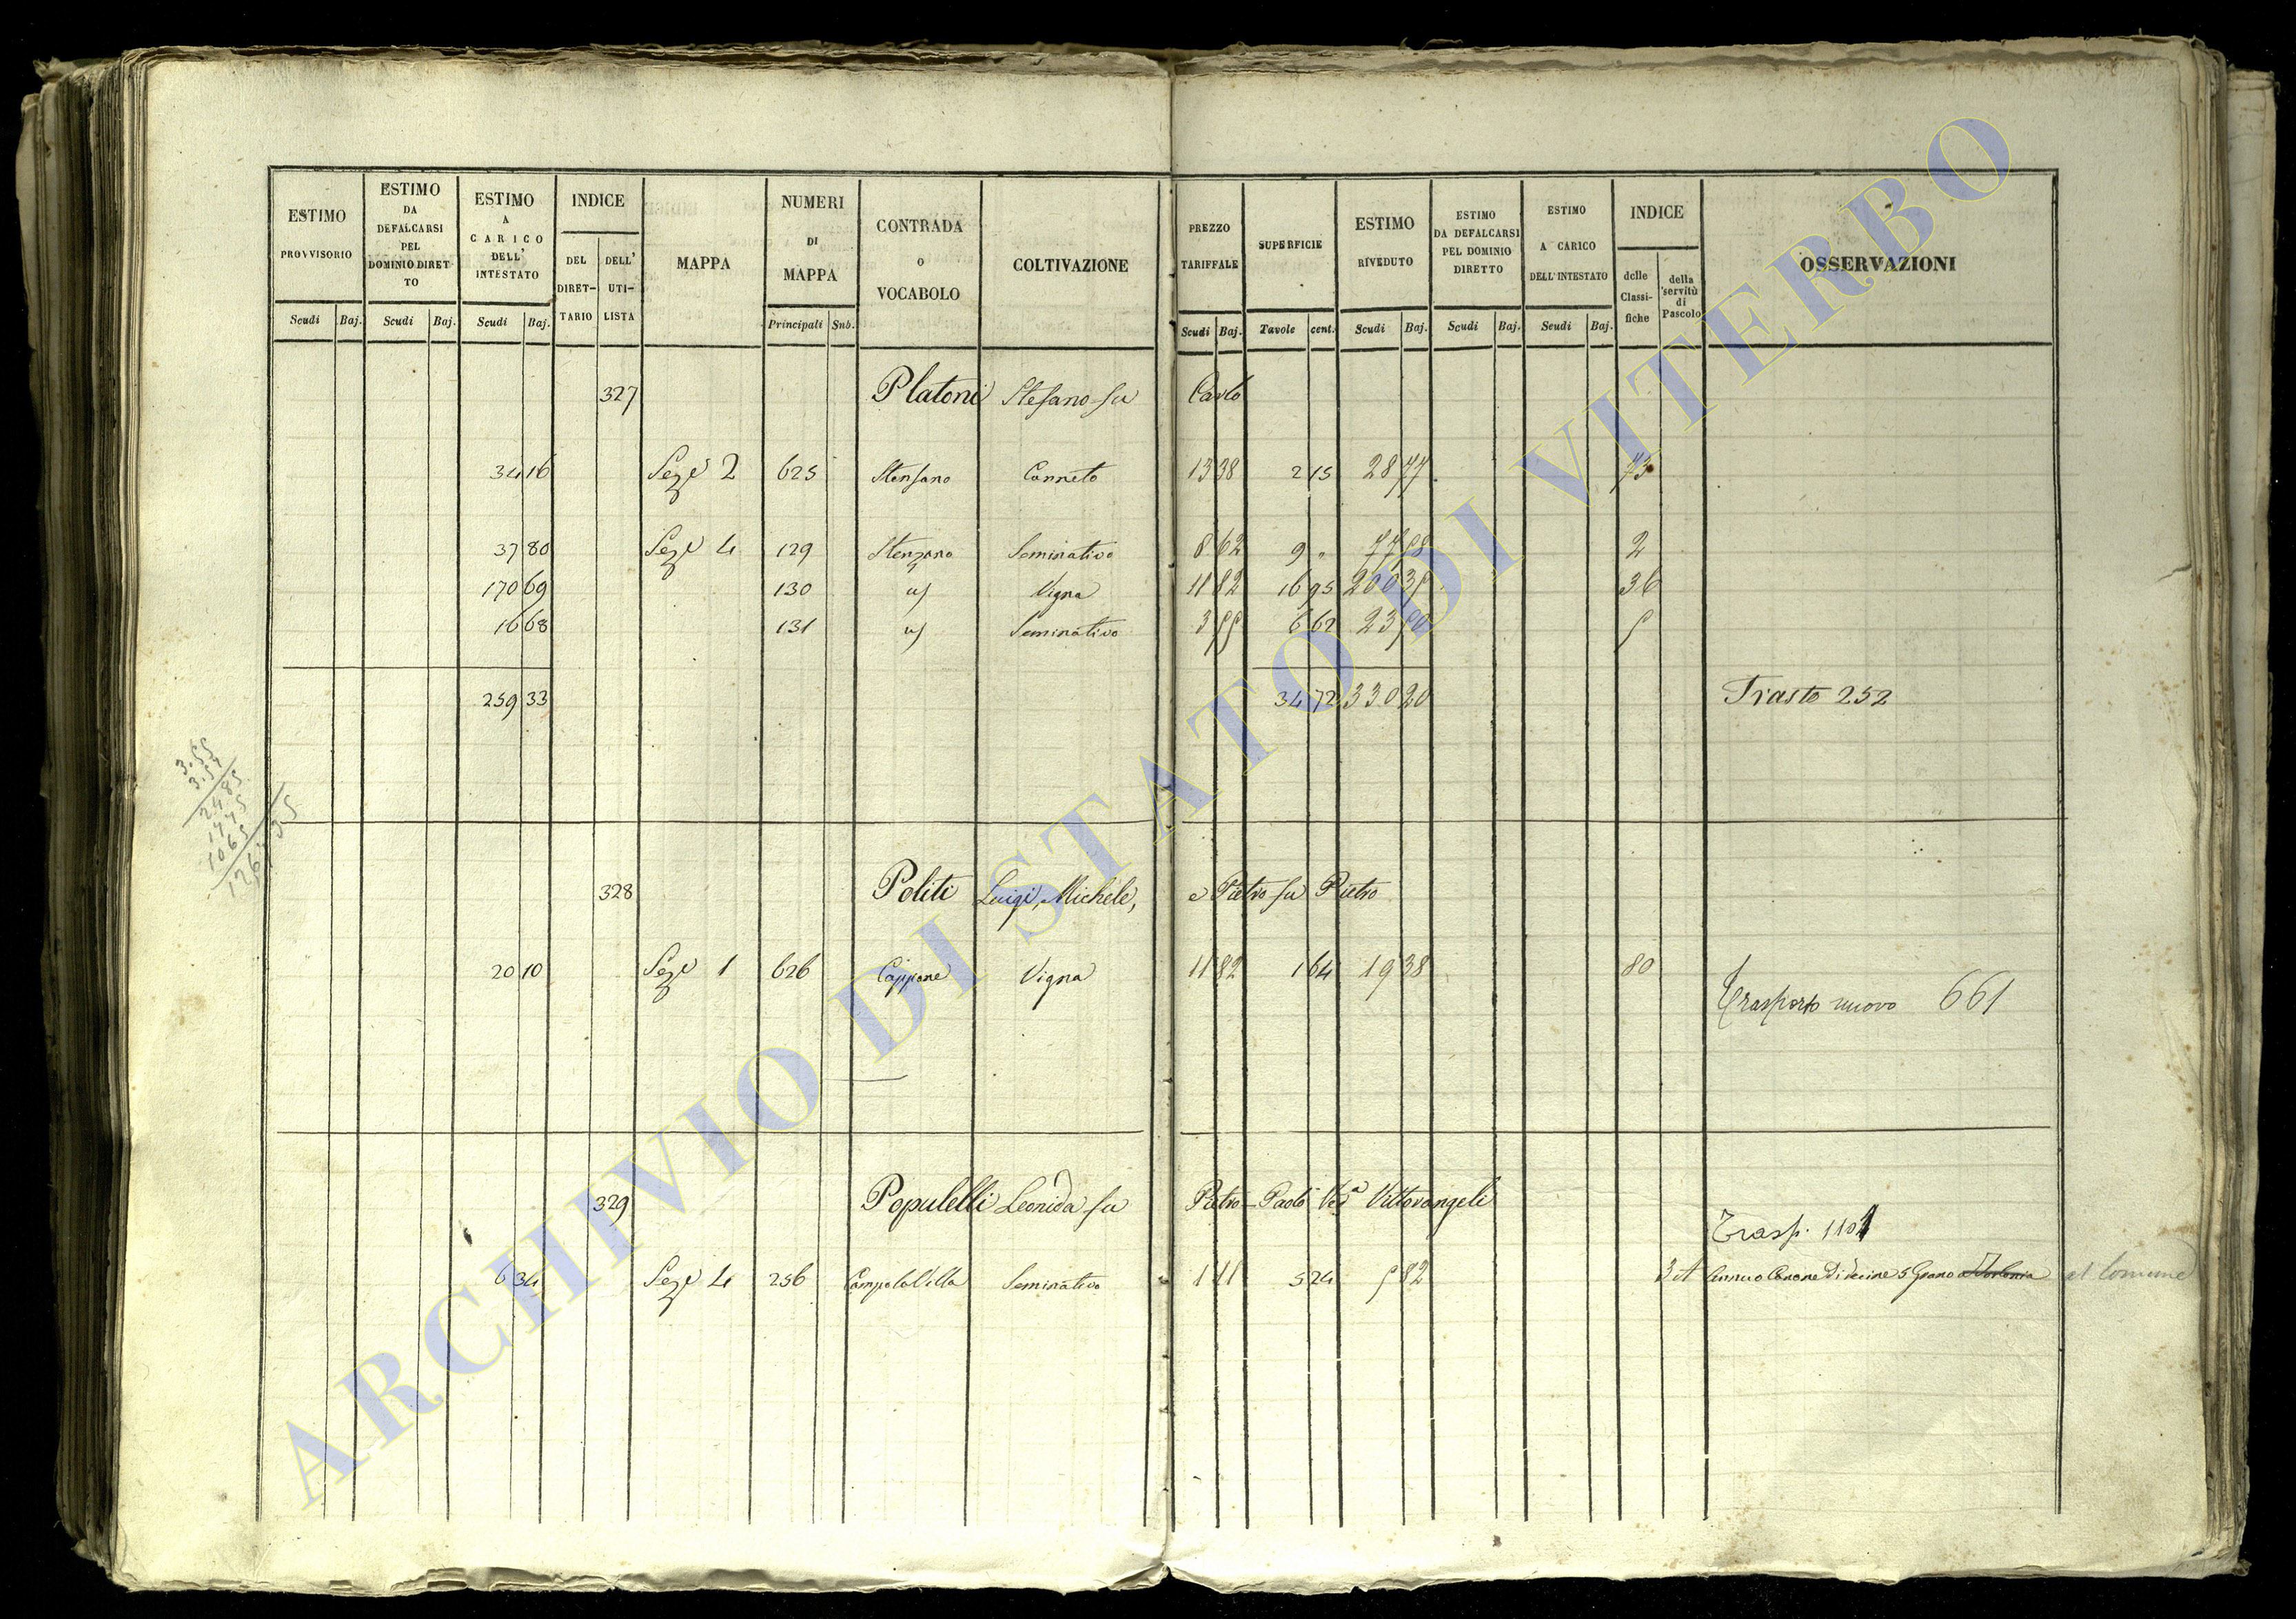 ESTIMO PROVVISORIO Scudi Baj.
ESTIMO DA DEFALCARSI PEL DOMINIO DIRETTO Scudi Baj.
ESTIMO A CARICO DELL' INTESTATO Scudi Baj.
INDICE DEL DIRETTARIO DELL' UTILISTA
MAPPA
NUMERI DI MAPPA Principali Sub.
CONTRADA O VOCABOLO
COLTIVAZIONE
PREZZO TARIFFALE Scudi Baj.
SUPERFICIE Tavole cent.
ESTIMO RIVEDUTO Scudi Baj.
ESTIMO DA DEFALCARSI PEL DOMINIO DIRETTO Scudi Baj.
ESTIMO A CARICO DELL'INTESTATO Scudi Baj.
INDICE delle Classifiche della servitù di Pascolo
OSSERVAZIONI
327 Platoni Stefano fu Carlo
34 16 Seze 2 625 Stensano Canneto 13 38 2 15 28 77 73
37 80 Seze 4 129 Stenzano Seminativo 8 62 9 " 77 58 2
170 69 130 Vigna 11 82 16 95 200 35 36
16 68 131 Seminativo 3 55 6 62 23 50 5
259 33 34 72 330 20 Trasto 252
3.55
2485
1775
1065
328 Politi Luigi, Michele, e Pietro fu Pietro
20 10 Seze 1 626 Cappone Vigna 11 82 1 64 19 38 80
Trasporto nuovo 661
329 Populelli Leonida fu Pietro-Paolo Ved.a Vittorangeli
Trasp. 1101
6 34 Seze 4 256 Campo la Villa Seminativo 1 11 5 24 5 82 3 A Annuo Canone di decine 5 Grano a Torlonia al Comune
ARCHIVIO DI STATO DI VITERBO